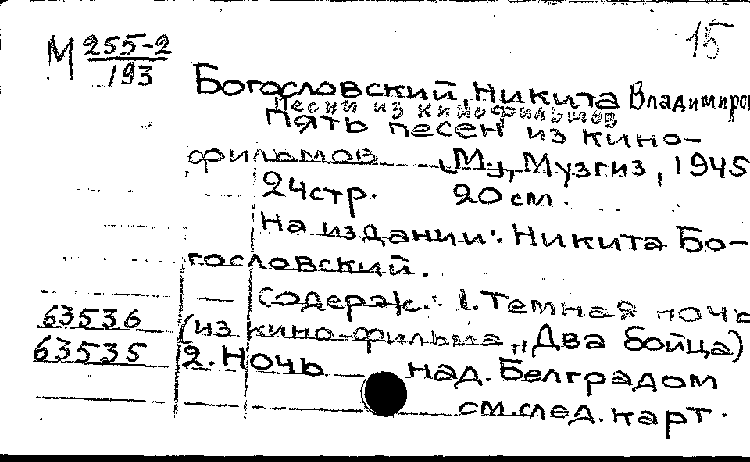 15
М 255-2
193
Богословский, Никита Владимиров
Песни из кинофильмов
Пять песен из кино-
фильмов М., Музгиз, 1945
24стр. 20 см.
На издании: Никита Бо-
гословский.
Содерж.: 1. Темная ночь
63536 (из кино-фильма „Два бойца)
63535 2. Ночь над Белградом
см. след. карт.